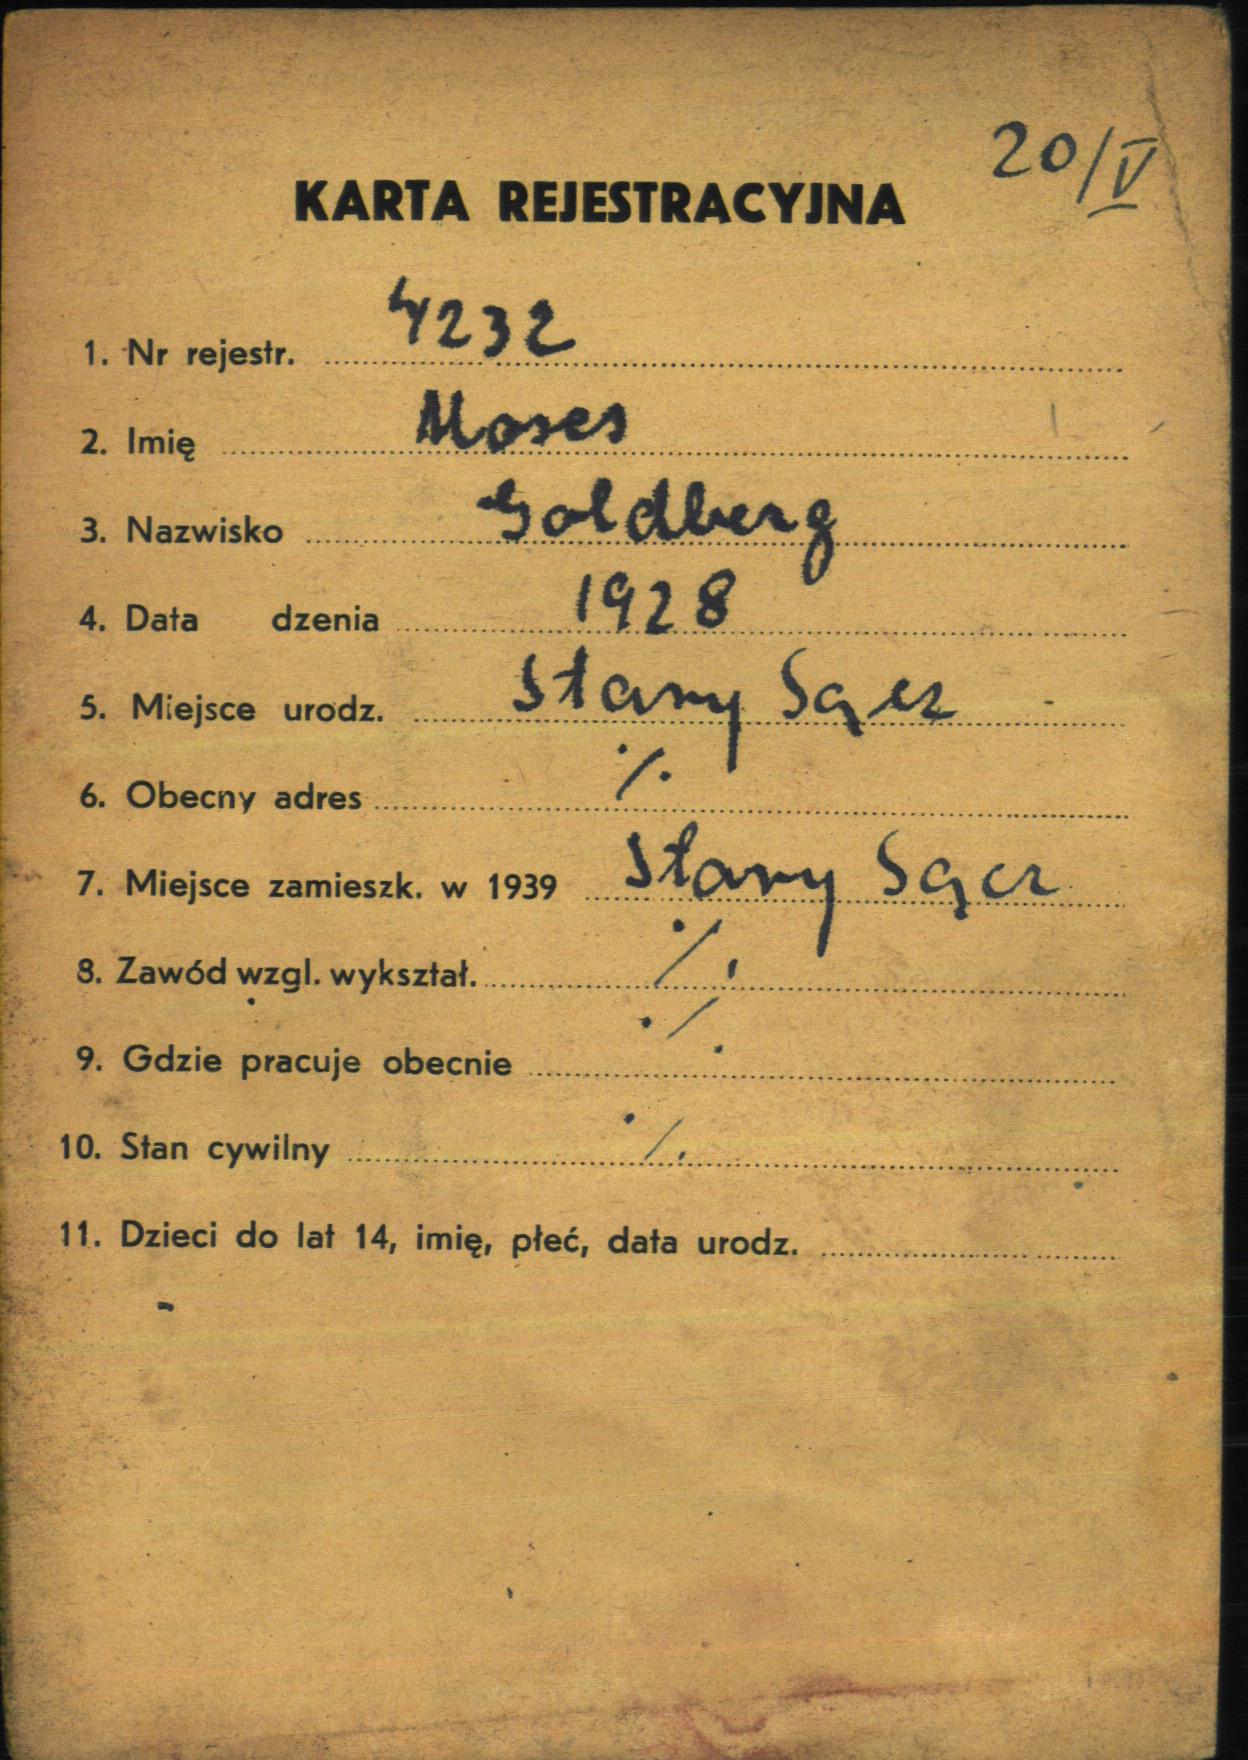 20/V
KARTA REJESTRACYJNA
1. Nr rejestr. 4232
2. Imię Moses
3. Nazwisko Goldberg
4. Data dzenia 1928
5. Miejsce urodz. Stary Sącz
6. Obecny adres ·/.
7. Miejsce zamieszk. w 1939 Stary Sącz
8. Zawód wzgl. wykształ. ·/.
9. Gdzie pracuje obecnie ·/.
10. Stan cywilny ·/.
11. Dzieci do lat 14, imię, płeć, data urodz.